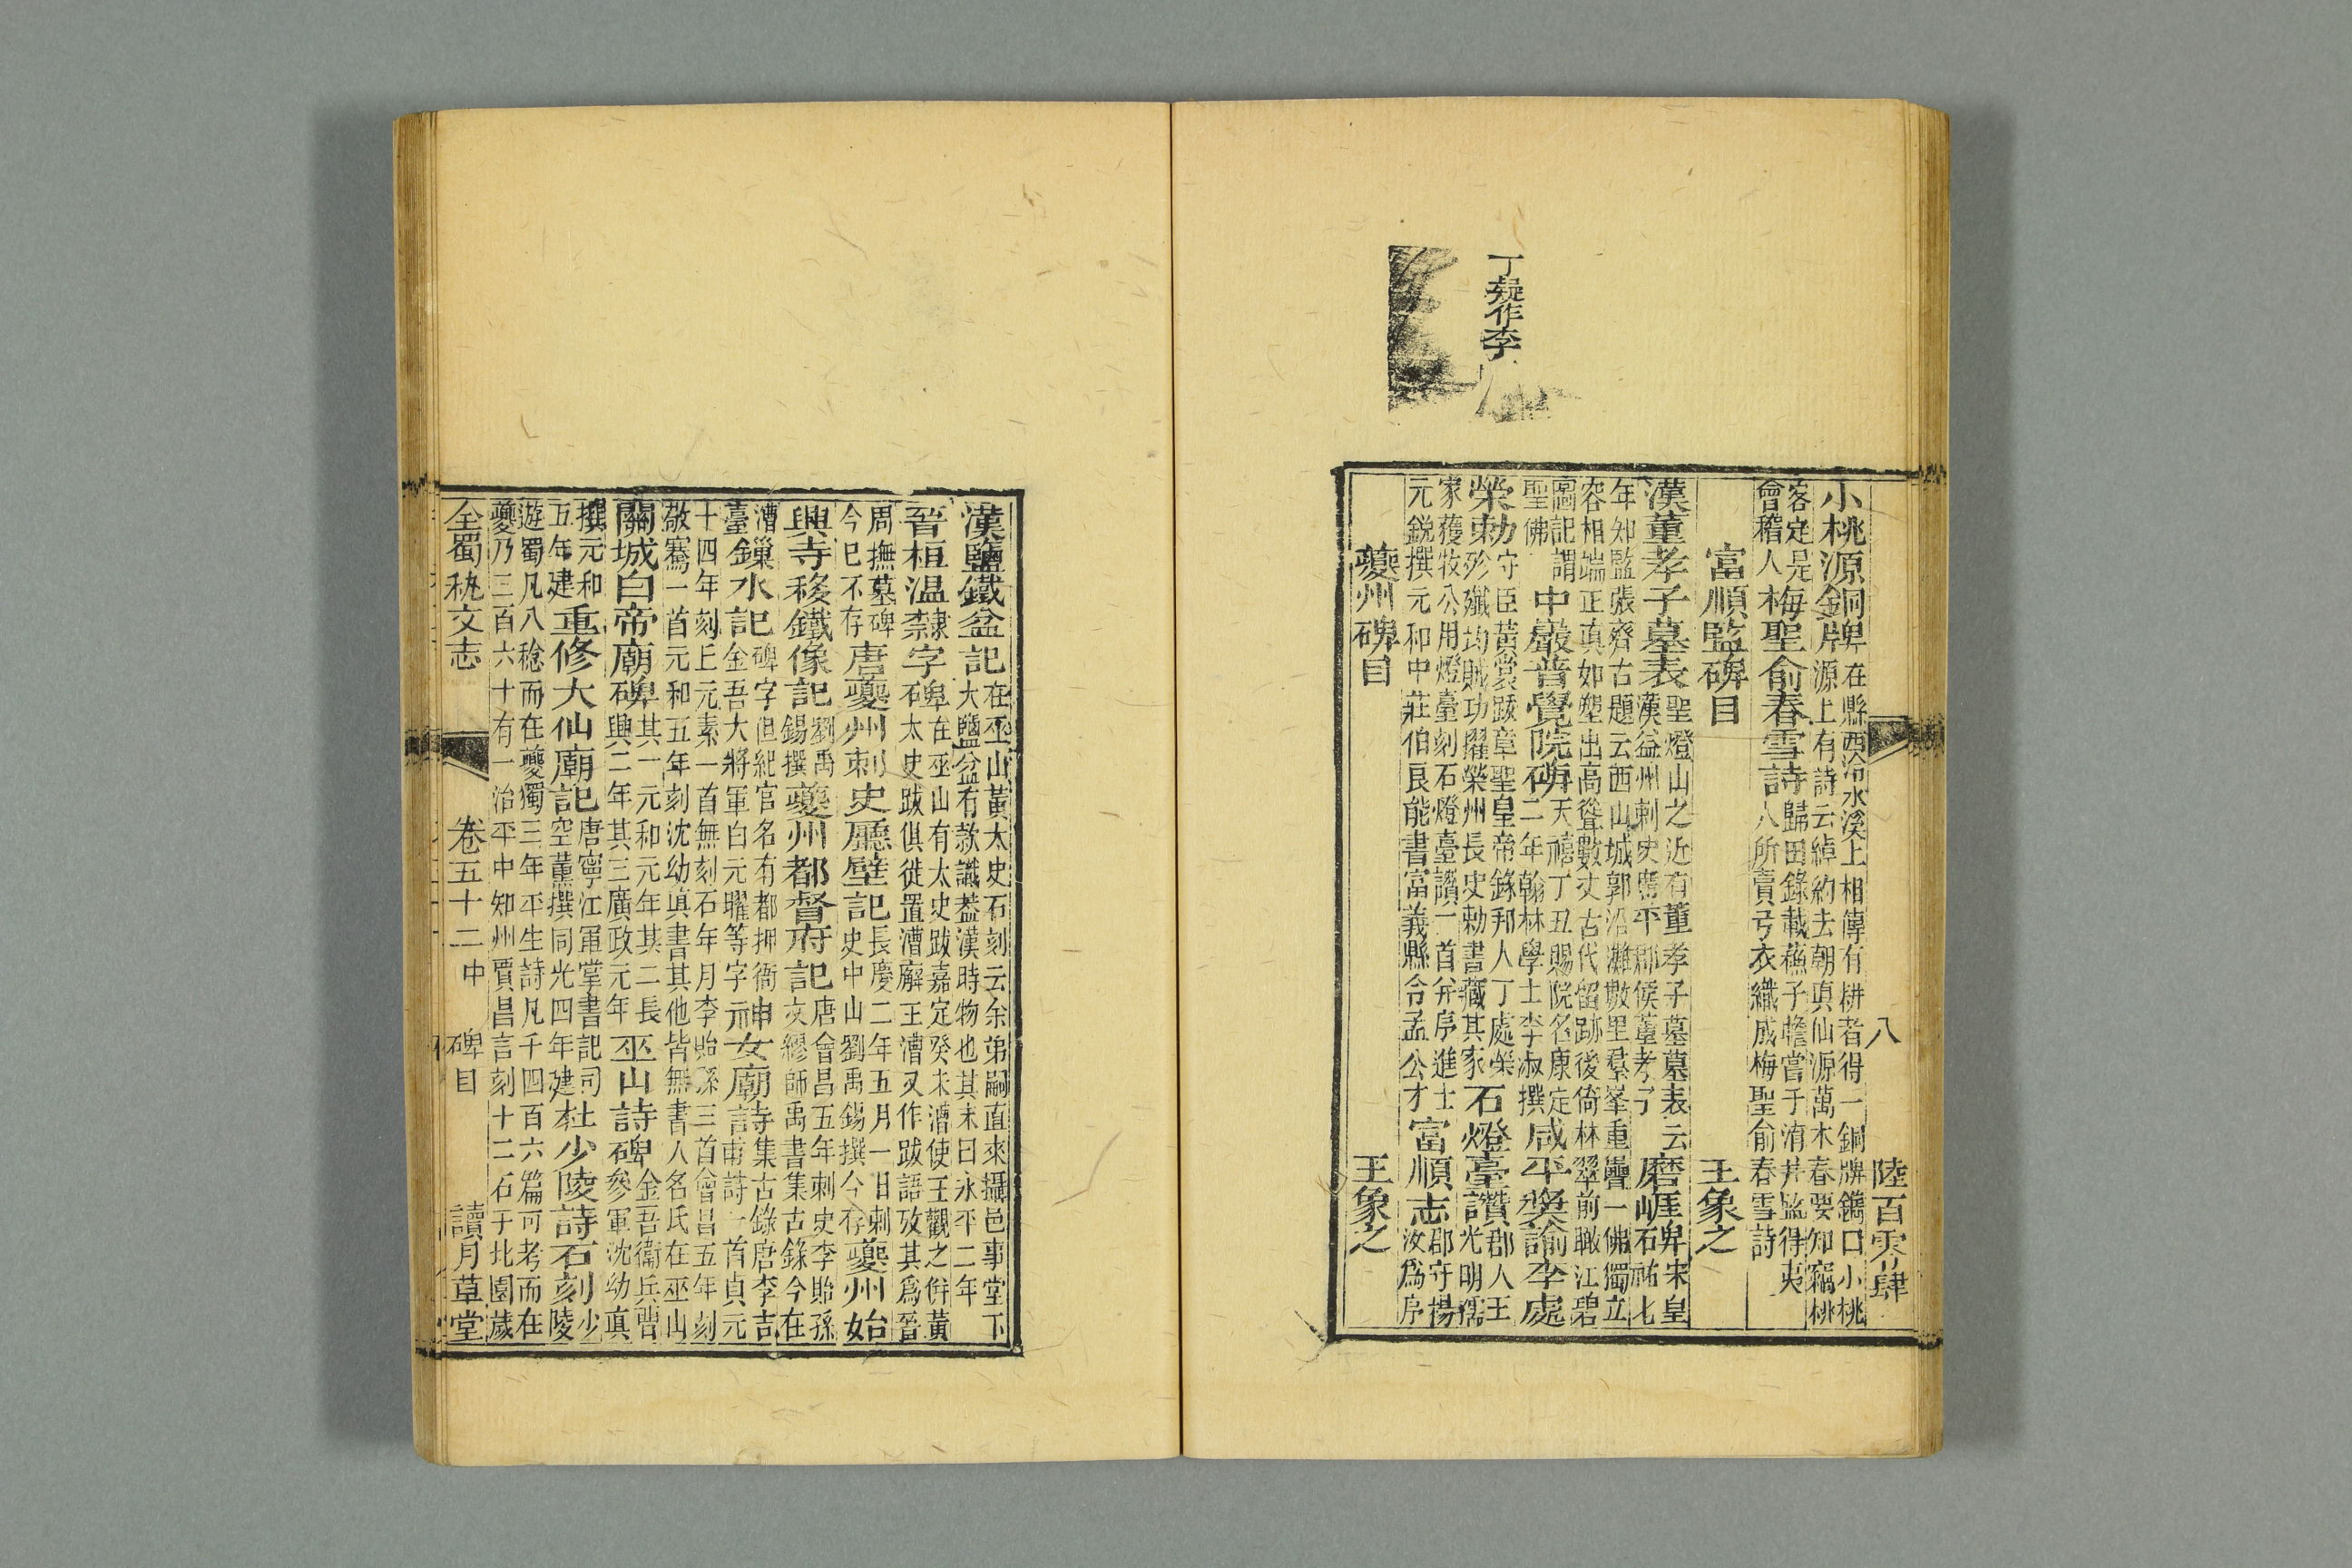 丁疑作李
八
陸百零肆
小桃源銅牌在縣西冷水溪上相傳有耕者得一銅牌鐫曰小桃
源上有詩云綽約去朝真仙源萬木春要知竊桃
客定是梅聖俞春雪詩歸田錄載蘇子瞻嘗于淯井監得夷
會稽人人所賣弓衣織成梅聖俞春雪詩
富順監碑目
王象之
漢董孝子墓表聖燈山之近有董孝子墓墓表云
漢益州刺史廣平郡侯董孝子磨崖碑宋皇祐七
年知監張齊古題云西山城郭沿灘數里羣峯重疊一佛獨立
容相端正真如塑出高聳數丈古代留跡後倚林翠前瞰江碧
圖記謂中巖普覺院碑天禧丁丑賜院名康定
聖佛二年翰林學士李淑撰咸平獎諭李處
榮勅守臣黃裳跋章聖皇帝錄邦人丁處榮
勅殄殲均賊功擢榮州長史勅書藏其家石燈臺讚郡人王光明孺
家獲牧公用燈臺刻石燈臺讚一首并序進士
元銳撰元和中莊伯良能書富義縣令孟公才富順志郡守楊汝為序
夔州碑目
王象之
漢鹽鐵盆記在巫山黃太史石刻云余弟嗣直來攝邑事堂下
大鹽盆有款識葢漢時物也其末曰永平二年
晉桓溫隸字碑在巫山有太史跋嘉定癸未漕使王觀之併黃
石太史跋俱徙置漕廨王漕又作跋語攷其為晉
周撫墓碑
今已不存唐夔州刺史廳壁記長慶二年五月一日刺
史中山劉禹錫撰今存夔州始
興寺移鐵像記劉禹
錫撰夔州都督府記唐會昌五年刺史李貽孫
文繆師禹書集古錄今在
漕
臺鏁水記碑字但紀官名有都押衙
金吾大將軍白元曜等字神女廟詩集古錄唐李吉
元言甫詩一首貞元
十四年刻丘元素一首無刻石年月李貽孫三首會昌五年刻
敬騫一首元和五年刻沈幼真書其他皆無書人名氏在巫山
關城白帝廟碑其一元和元年其二長
興二年其三廣政元年巫山詩碑金吾衛兵曹
參軍沈幼真
撰元和
五年建重修大仙廟記唐寧江軍掌書記司
空薰撰同光四年建杜少陵詩石刻少
陵
遊蜀凡八稔而在夔獨三年平生詩凡千四百六篇可考而在
夔乃三百六十有一治平中知州賈昌言刻十二石于北園歲
全蜀秇文志
卷五十二中
碑目
讀月草堂